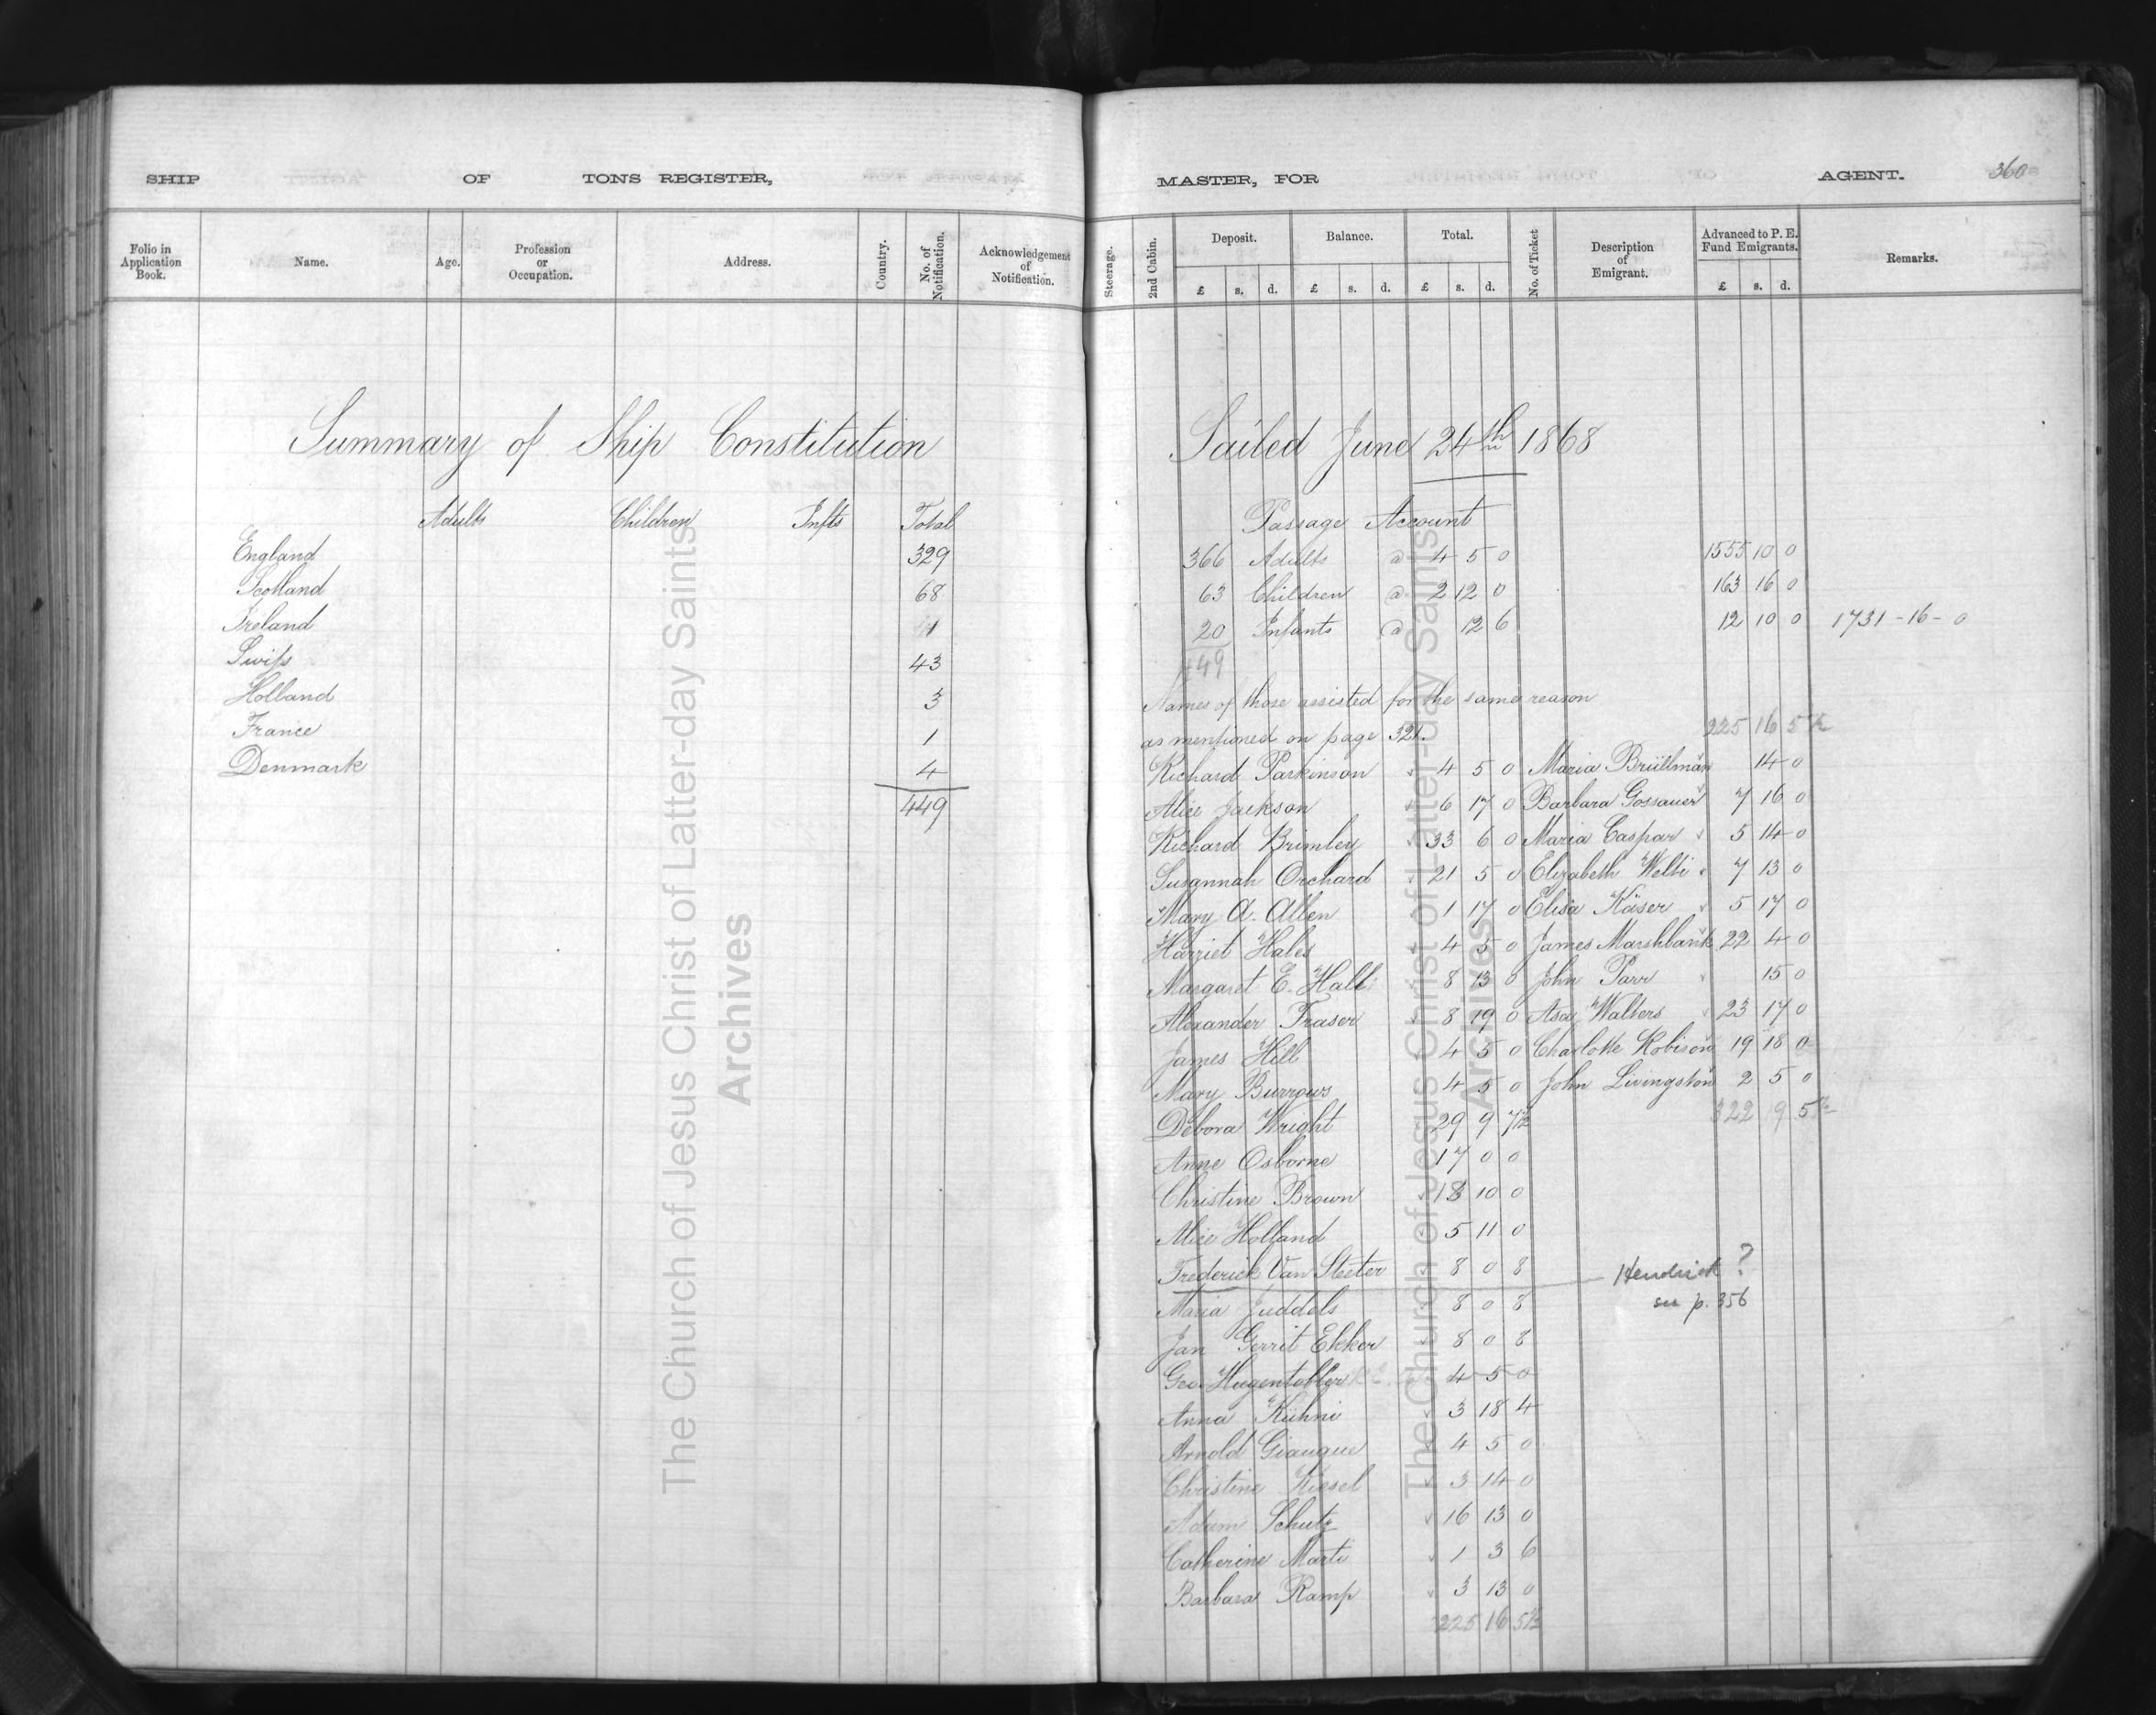 SHIP OF TONS REGISTER,
Folio in Application Book. Name. Age. Profession or Occupation. Address. Country. No. of Notification. Acknowledgement of Notification.
Summary of Ship Constitution
Adults Children Infts Total
England 329
Scotland 68
Ireland 1
Swiss 43
Holland 3
France 1
Denmark 4
449
The Church of Jesus Christ of Latter-day Saints
Archives
MASTER, FOR AGENT. 360
Steerage. 2nd Cabin. Deposit. Balance. Total. No. of Ticket Description of Emigrant. Advanced to P. E. Fund Emigrants. Remarks.
£ s. d. £ s. d. £ s. d. £ s. d.
Sailed June 24th 1868
Passage Account
366 Adults @ 4 5 0 1555 10 0
63 Children @ 2 12 0 163 16 0
20 Infants @ 12 6 12 10 0 1731-16-0
449
Names of those assisted for the same reason
as mentioned on page 321. 225 16 5½
Richard Parkinson 4 5 0 Maria Brüllman 14 0
Alice Jackson 6 17 0 Barbara Gossauer 7 16 0
Richard Brimley 33 6 0 Maria Caspar 5 14 0
Susannah Orchard 21 5 0 Elizabeth Welti 7 13 0
Mary A. Allen 1 17 0 Elisa Käser 5 17 0
Harriet Hales 4 5 0 James Marshbank 22 4 0
Margaret E. Hall 8 13 0 John Parr 15 0
Alexander Fraser 8 19 0 Asa Walters 23 17 0
James Hill 4 5 0 Charlotte Robison 19 18 0
Mary Burrows 4 5 0 John Livingston 2 5 0
Debora Wright 29 9 7½ 322 9 5½
Anne Osborne 17 0 0
Christine Brown 18 10 0
Alice Holland 5 11 0
Frederick Van Sleeter 8 0 8 Hendrick ?
Maria Juddels 8 0 8 see p. 356
Jan Gerrit Ekker 8 0 8
Geo. Hugentobler 4 5 0
Anna Kühni 3 18 4
Arnold Giauque 4 5 0
Christine Kiesel 3 14 0
Adam Schutz 16 13 0
Catherine Marti 1 3 6
Barbara Ramp 3 13 0
225 16 5½
The Church of Jesus Christ of Latter-day Saints
Archives